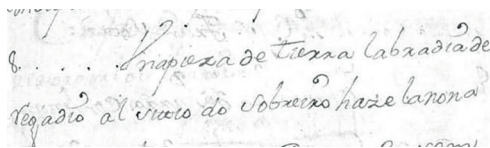 8. . . . . . Vnapieza de tierra labradia de
regadio al sitio do sobreiro haze banona